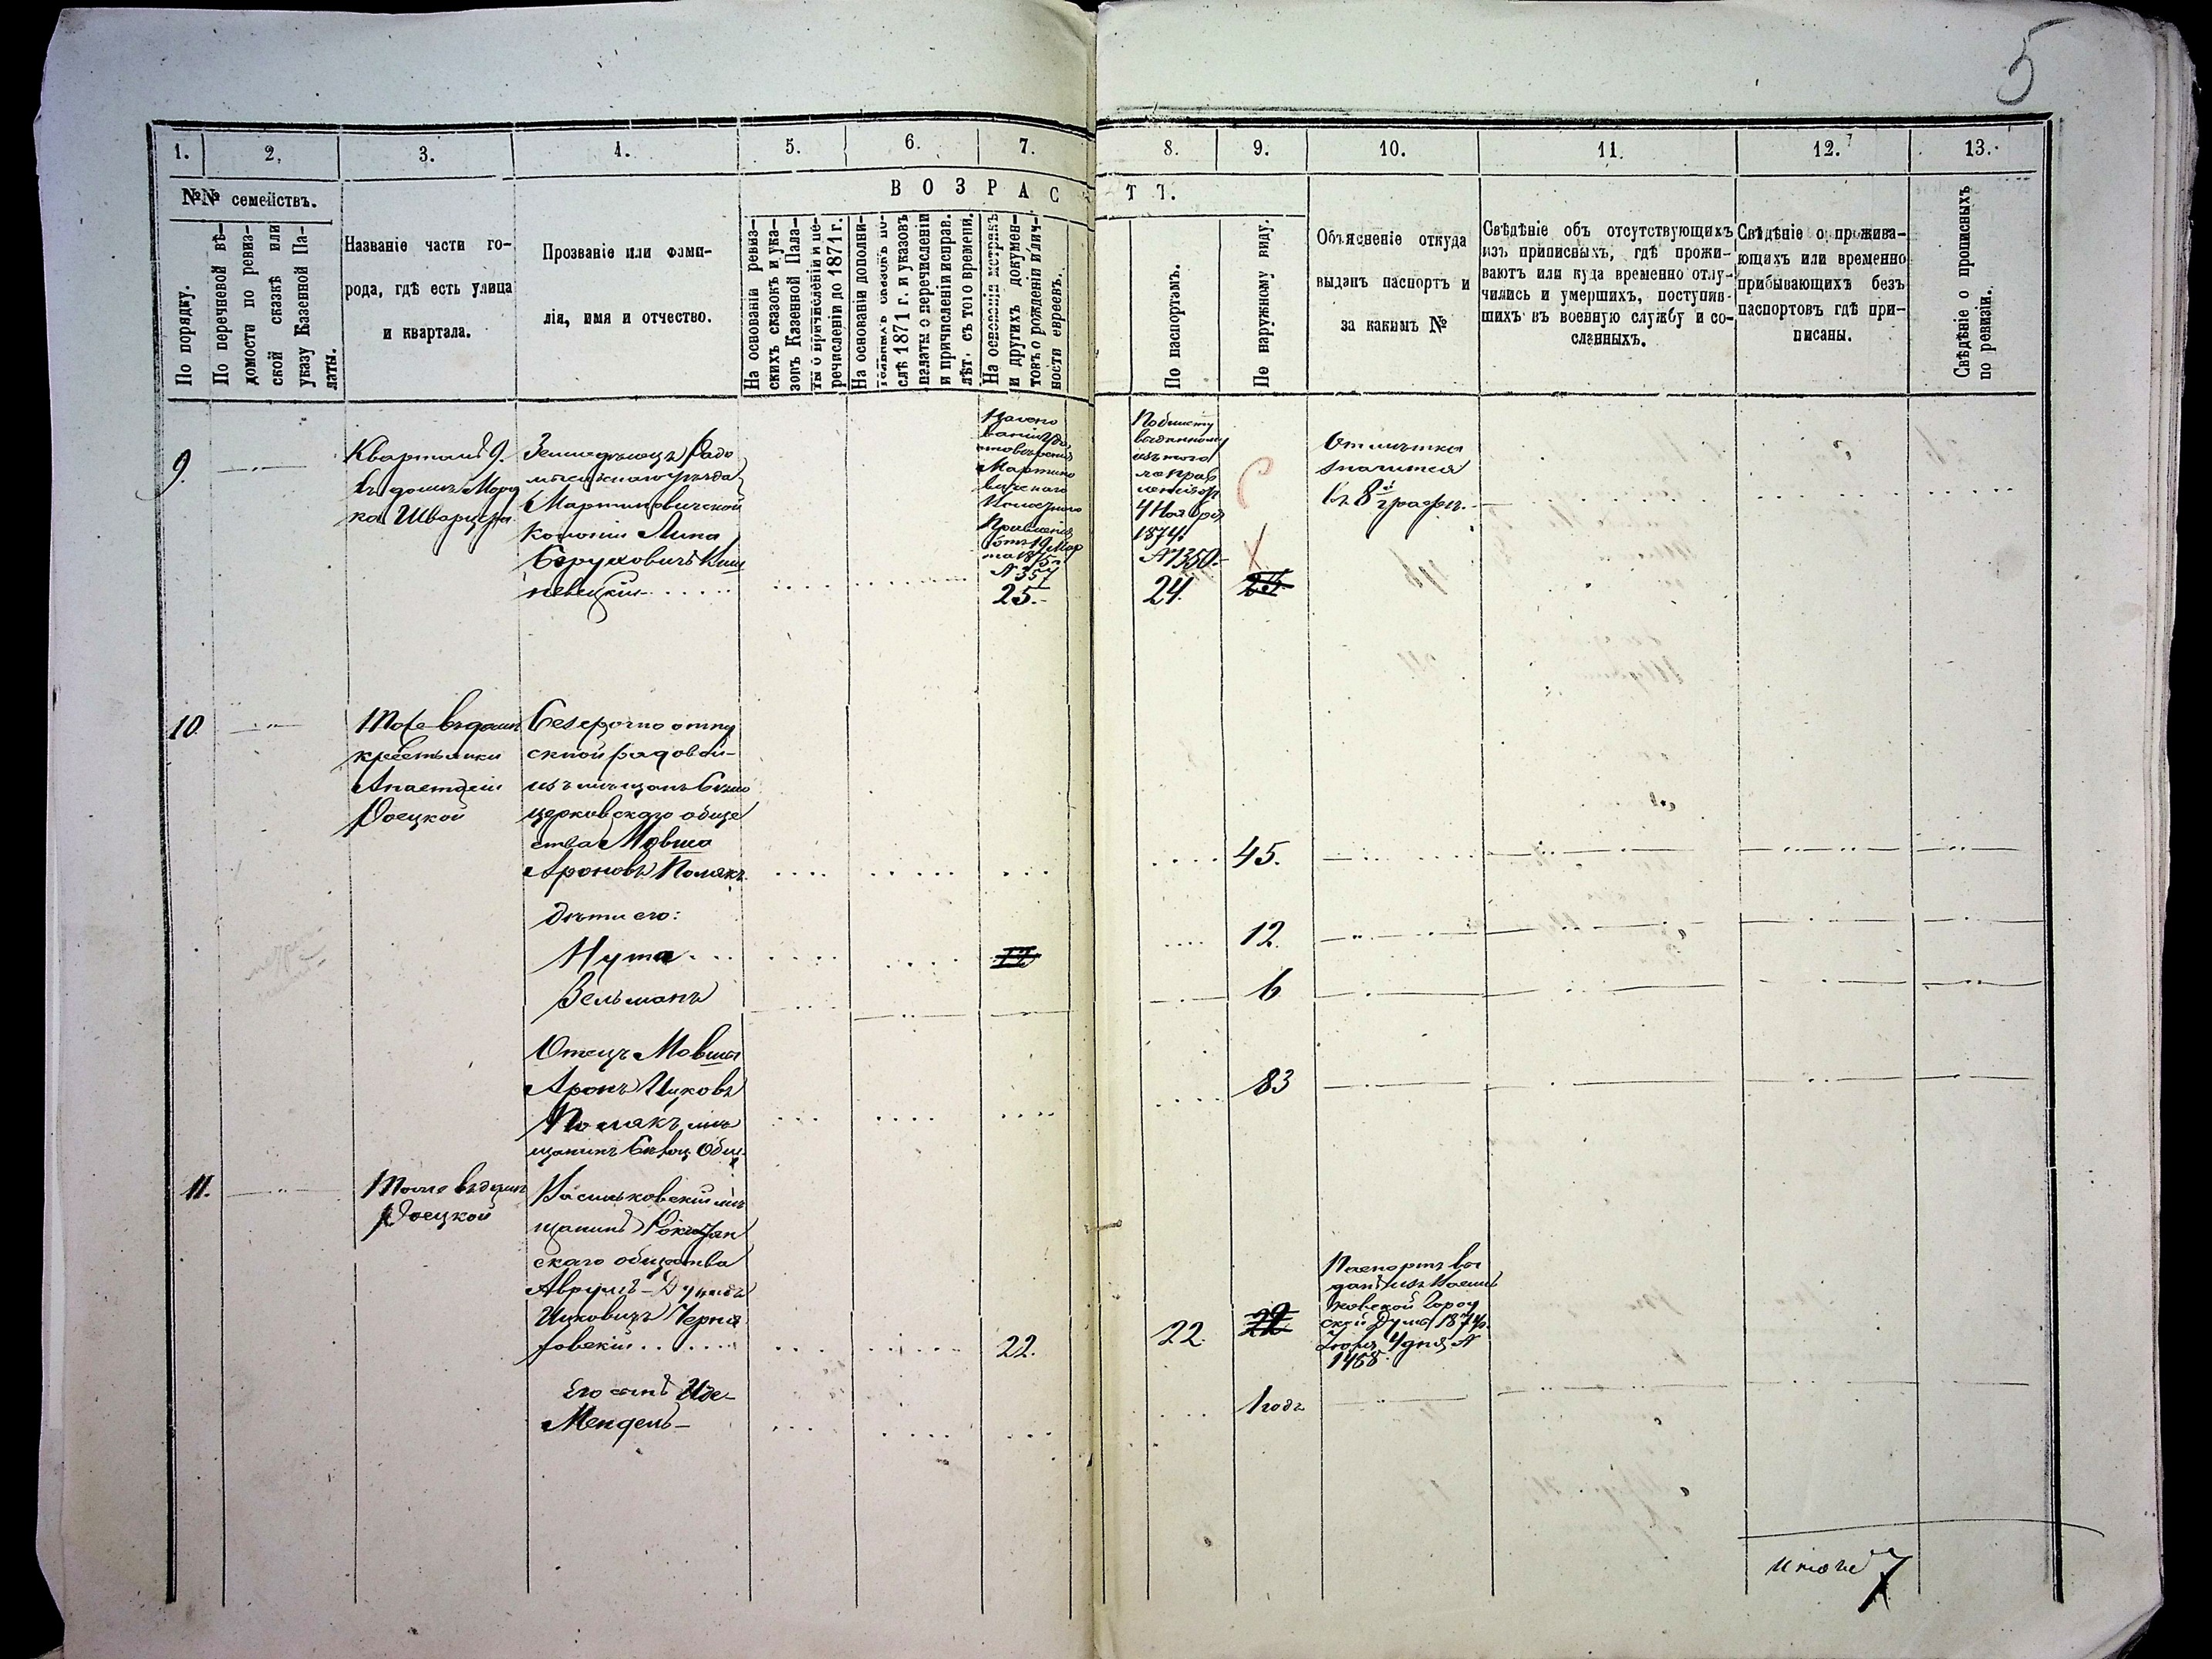 5
1.
2.
3.
4.
5.
6.
7.
8.
9.
10.
11.
12.
13.
№№ семействъ.
По порядку.
По перечневой вѣ-
домости по ревиз-
ской сказкѣ или
указу Казенной Па-
латы.
Названіе части го-
рода, гдѣ есть улица
и квартала.
Прозваніе или фами-
лія, имя и отчество.
ВОЗРАСТЪ.
На основаніи ревиз-
скихъ сказокъ и ука-
зовъ Казенной Пала-
ты о причисленіи и пе-
речисленіи до 1871 г.
На основаніи дополни-
тельныхъ сказокъ по-
слѣ 1871 г. и указовъ
палаты о перечисленіи
и причисленіи исправ.
лѣт. съ того времени.
На основаніи метрикъ
и другихъ докумен-
товъ о рожденіи и лич-
ности евреевъ.
По паспортамъ.
По наружному виду.
Объясненіе откуда
выданъ паспортъ и
за какимъ №
Свѣдѣніе объ отсутствующихъ
изъ приписныхъ, гдѣ прожи-
ваютъ или куда временно отлу-
чились и умершихъ, поступив-
шихъ въ военную службу и со-
сланныхъ.
Свѣдѣніе о прожива-
ющихъ или временно
прибывающихъ безъ
паспортовъ гдѣ при-
писаны.
Свѣдѣніе о прописныхъ
по ревизіи.
9.
Кварталъ 9.
въ домѣ Морд
ка Шварцера
Земледѣлецъ Радо
мысльскаго уѣзда
Мартиновичской
колоніи Липа
Беруховичъ Киш
невецкій
На осно
ваніи удо
стовѣренія
Мартино
вичскаго
Правленія
отъ 19 Мар
та 1875 г.
N 357
25.
По билету
выданному
изъ того
же Прав
ленія отъ
4 Ноября
1874 г.
N 1350.
24.
Отмѣтка
значится
въ 8й графѣ.
10
Тоже въ домѣ
крестьянки
Анастасіи
Доецкой
Безсрочно отпу
скной рядовой
изъ мѣщанъ Бѣло
церковскаго обще
ства Мовша
Ароновъ Полякъ
45.
Дѣти его:
Нута
12
12.
Зельманъ
6
Отецъ Мовши
Аронъ Ицковъ
Полякъ мѣ
щанинъ Бѣлоц. Общ.
83
11.
Тоже въ домѣ
Доецкой
Васильковскій мѣ
щанинъ Рокитян
скаго общества
Аврумъ-Дувидъ
Ицковичъ Черня
ховскій
22.
22.
22
Паспортъ вы
данъ изъ Василь
ковской Город
ской Думы 1874 г.
4 дня N
1468.
Его сынъ
Мендель
1 годъ
итого 7